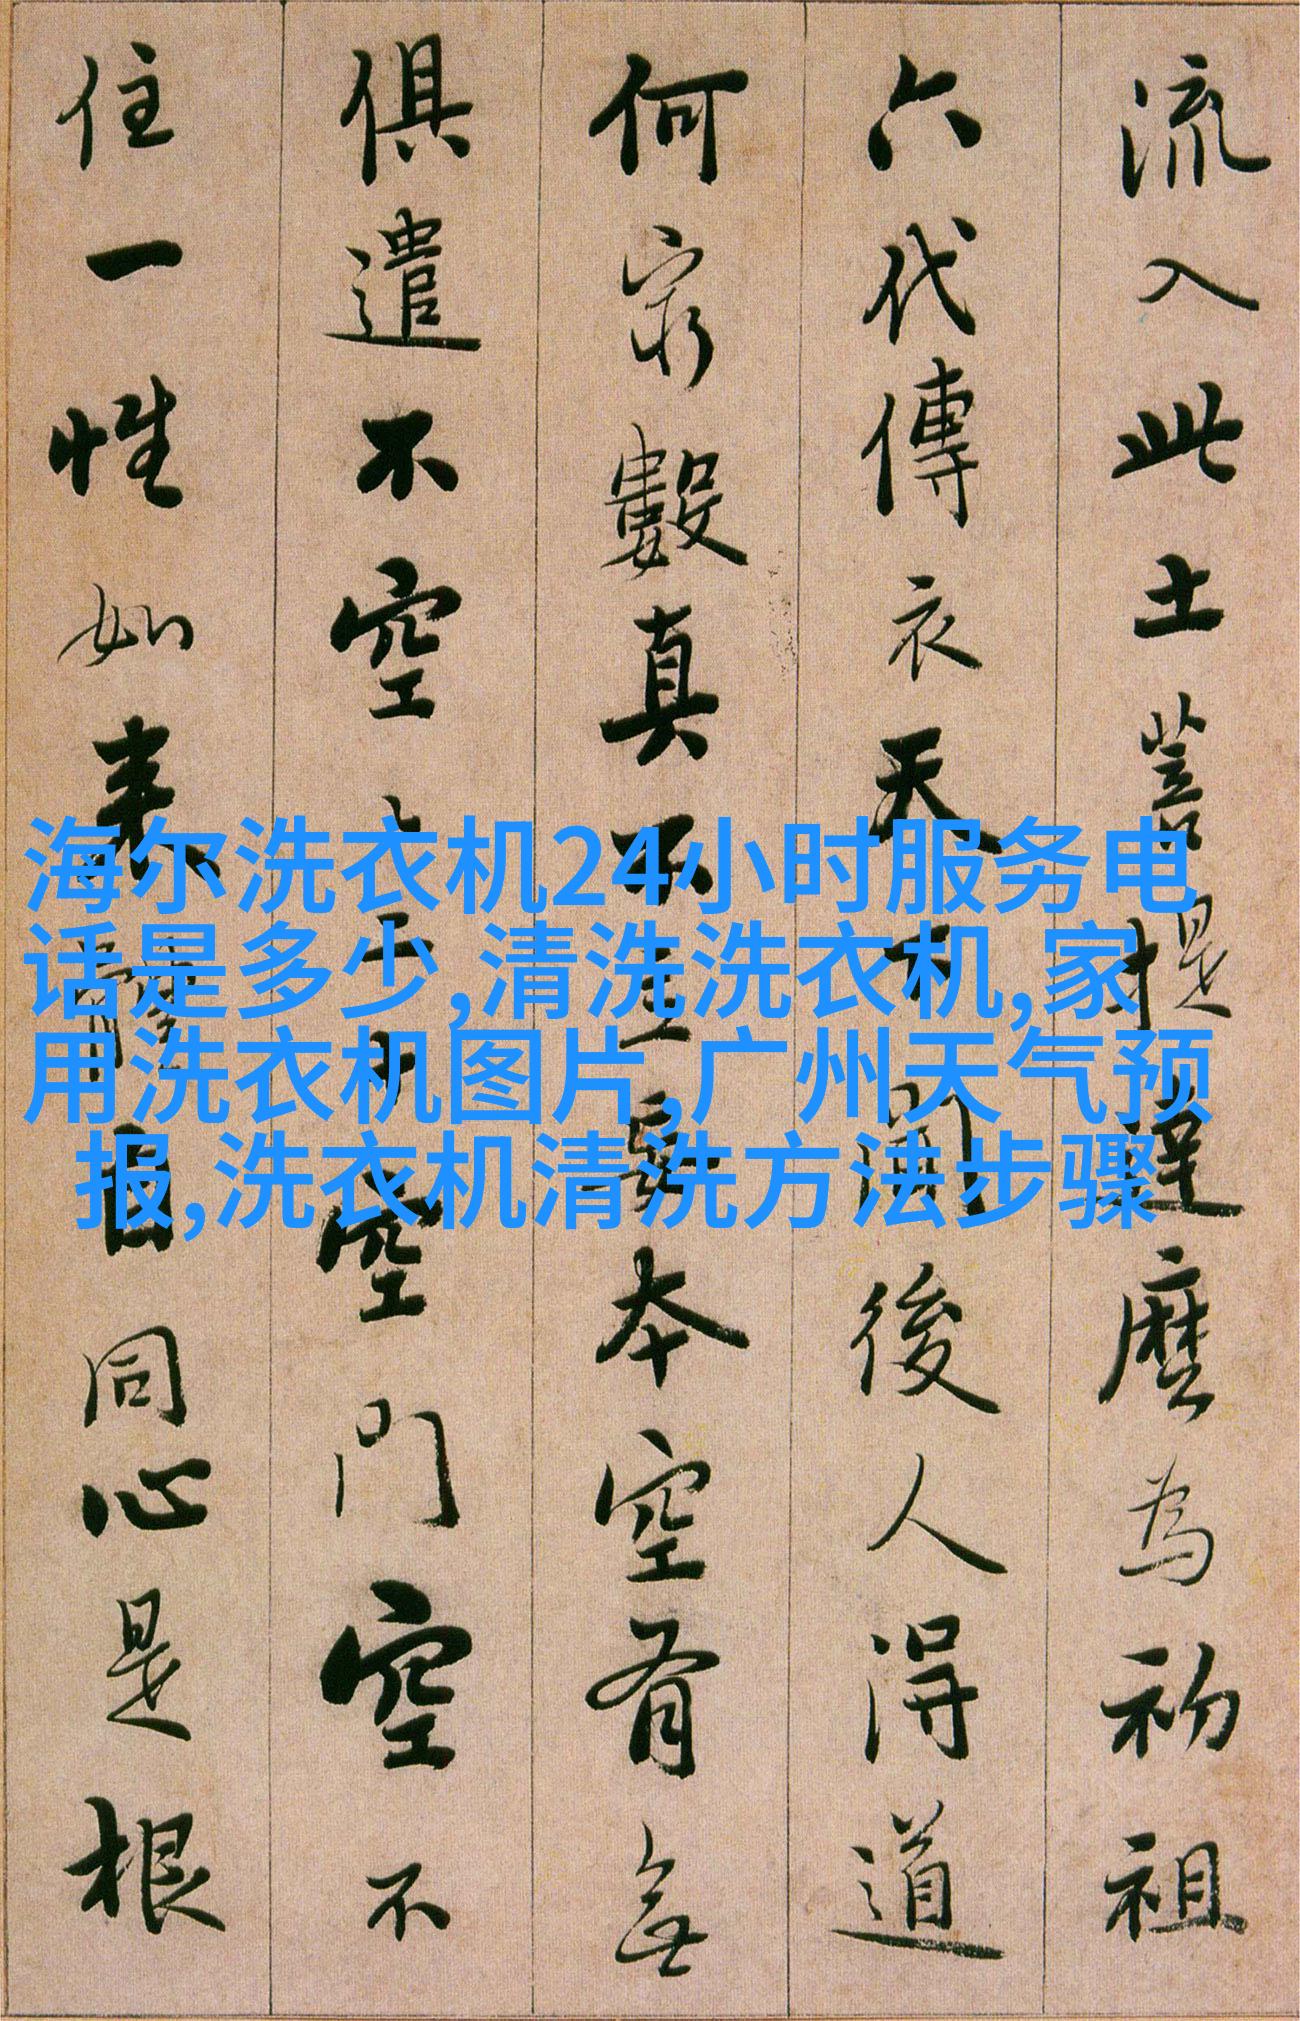 流入此土菩提達磨為初祖
六代傳衣天下聞後人得道
何窮數真不立妄本空有無
俱遣不空空門空不
住一性如來體自同心是根
海尔洗衣机24小时服务电
话是多少,清洗洗衣机,家
用洗衣机图片,广州天气预
报,洗衣机清洗方法步骤